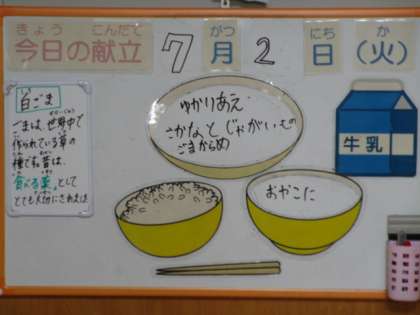 きょう こんだて がつ にち か
今日の献立 7月2日(火)
白ごま
ごまは、世界中で
作られている草の
種です。昔は、
食べる薬、として
とても大切にされた
ゆかりあえ
さかなと じゃがいもの
ごまからめ
おやこに
牛乳